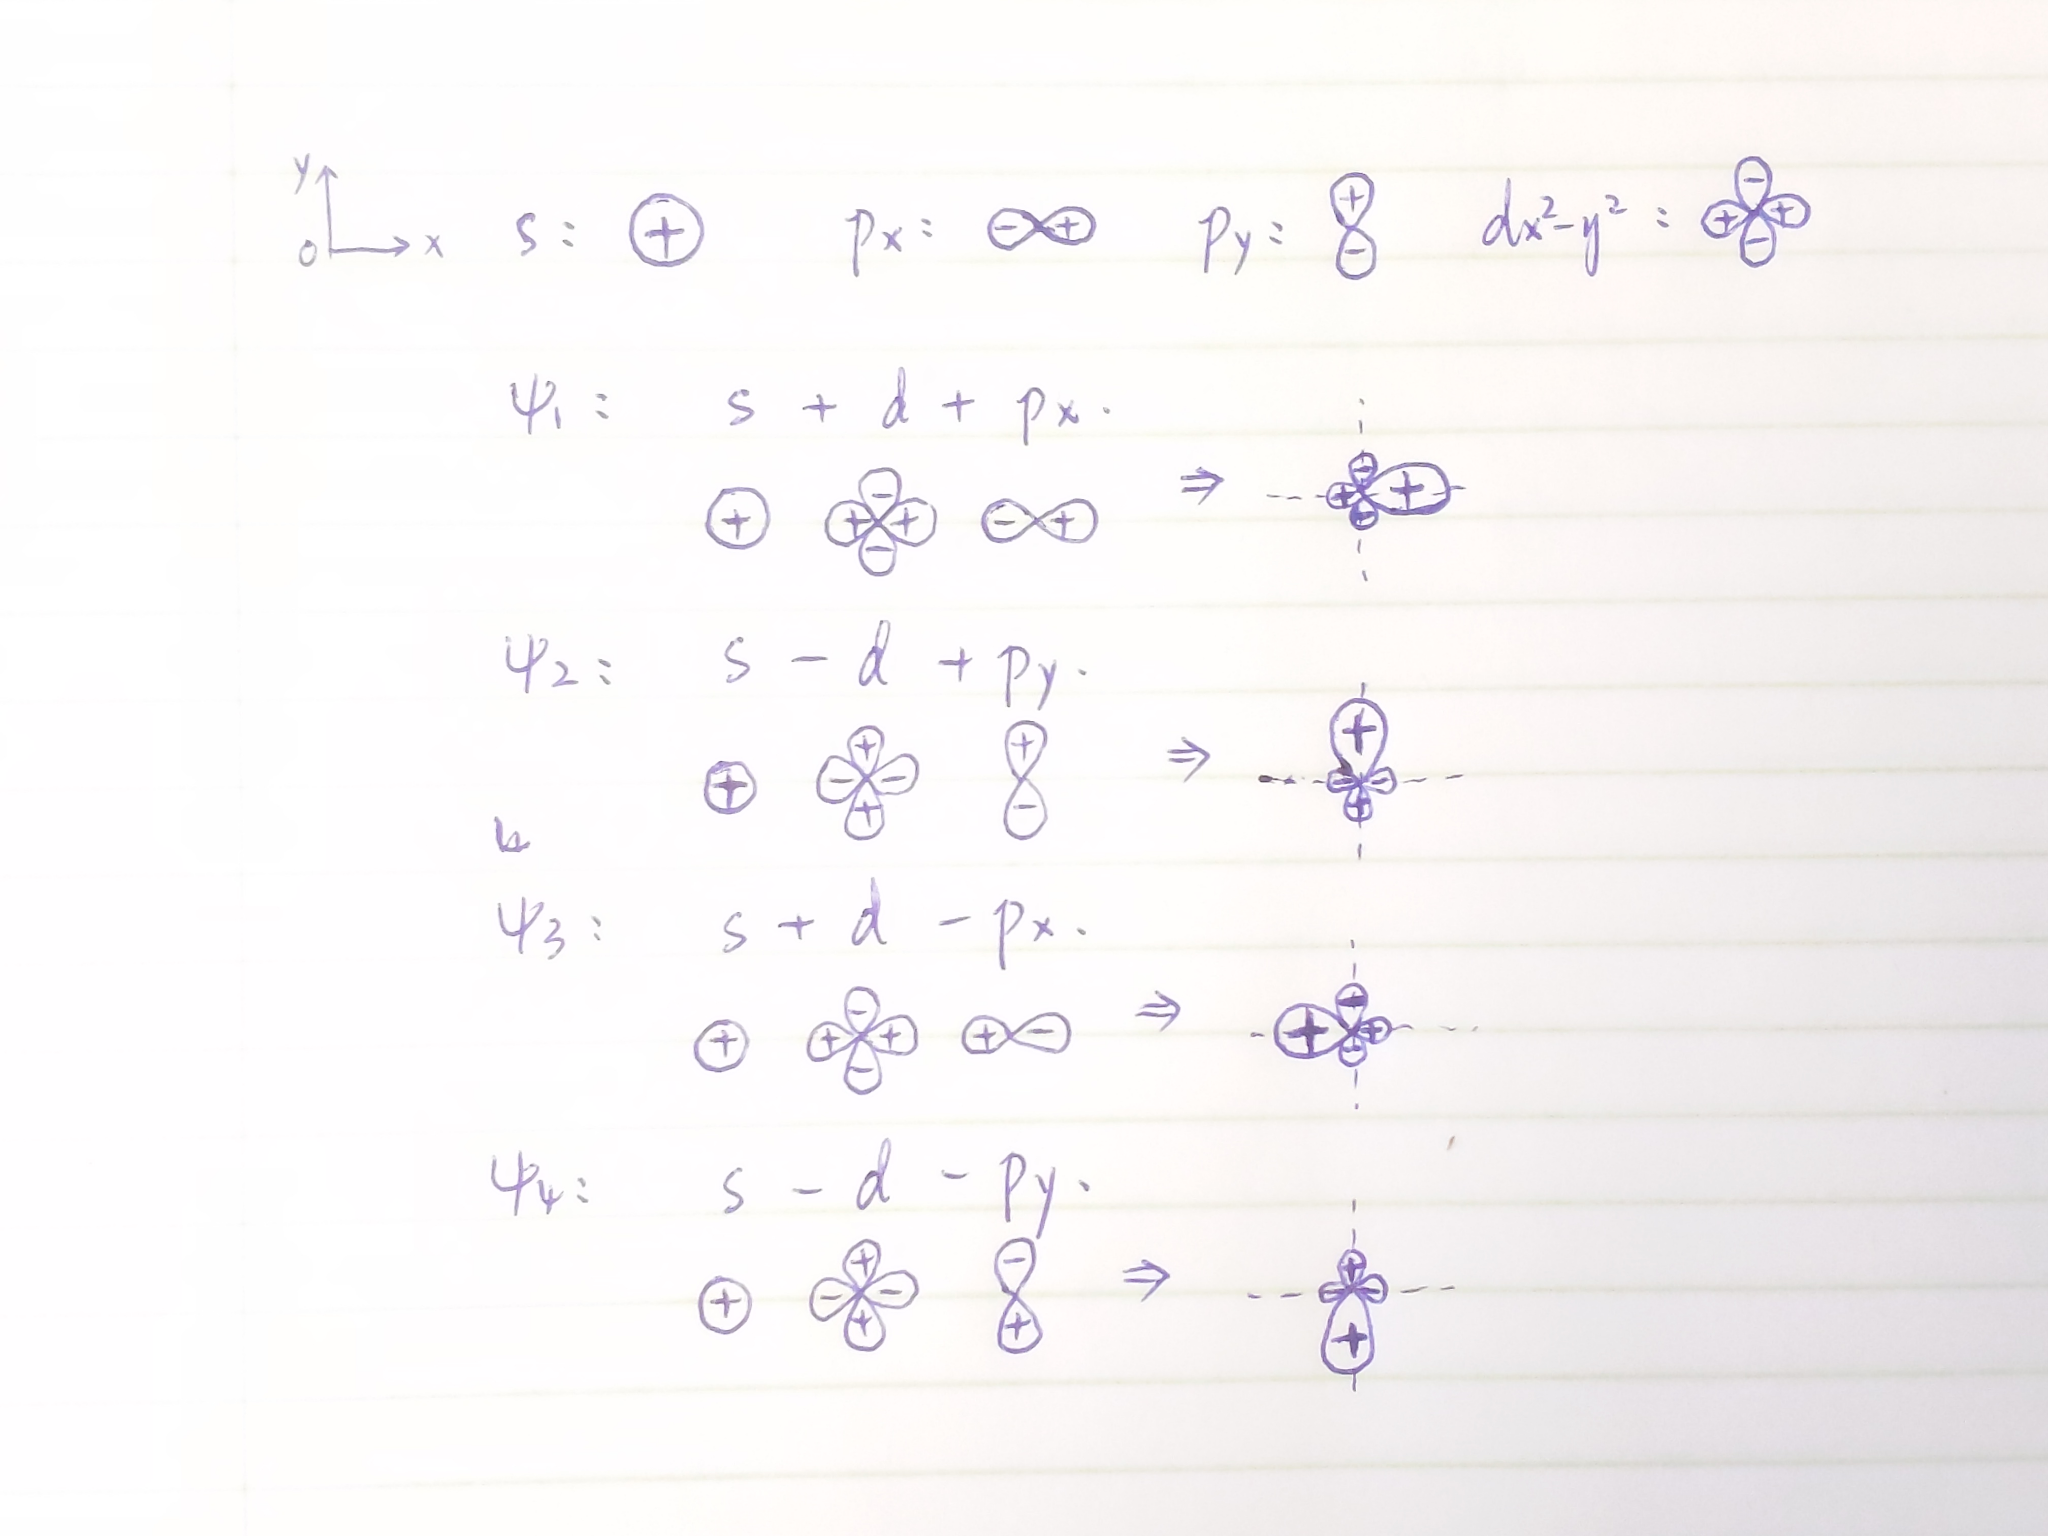 y O x s: + px: - + py: + - dx²-y²: - + + -
ψ1: s + d + px.
+ - + + - - + ⇒ - + + -
ψ2: s - d + py.
+ + - - + + - ⇒ + - - +
ψ3: s + d - px.
+ - + + - + - ⇒ - + + -
ψ4: s - d - py.
+ + - - + - + ⇒ + - - +